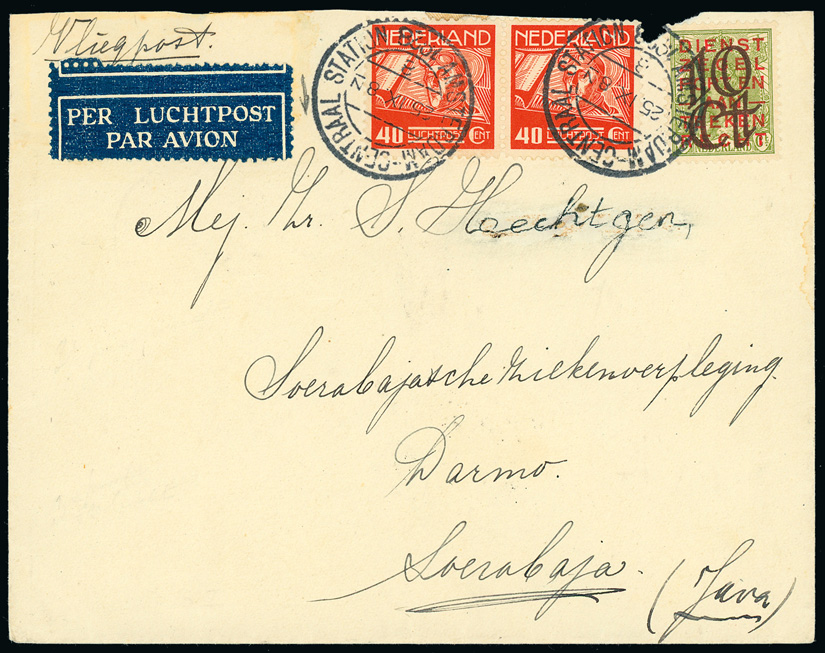 Vliegpost.
PER LUCHTPOST
PAR AVION
NEDERLAND
40 LUCHTPOST CENT
NEDERLAND
40 LUCHTPOST CENT
AMSTERDAM-CENTRAAL STATION
DIENST
10
Ct
NEDERLAND
Mej. Zr. S. Haechtgen,
Soerabajasche Ziekenverpleging.
Darmo.
Soerabaja.
(Java)